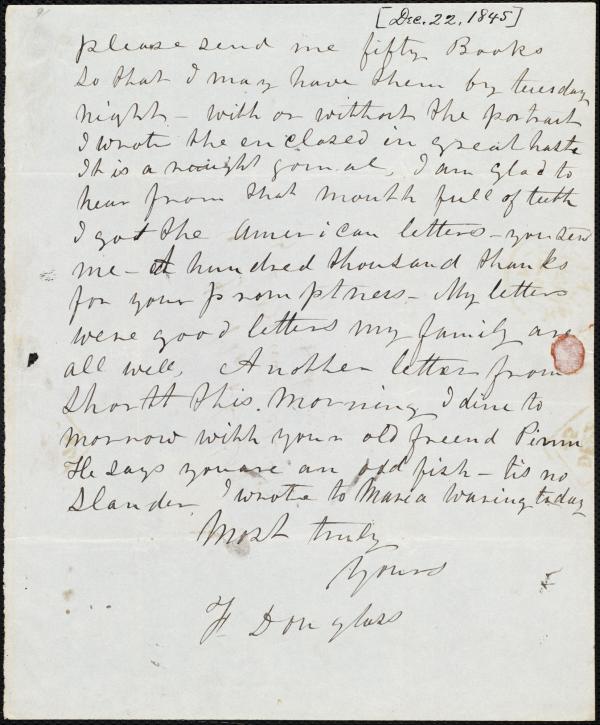 [Dec. 22, 1845]
please send me fifty Books
so that I may have them by tuesday
night - with or without the portrait
I wrote the enclosed in great haste
It is a I am glad to
hear from that mouth full of teeth
I got the American letters - you send
me - A hundred thousand thanks
for your promptness - My letters
were good letters my family are
all well, Another letter from
Shortt this. Morning I dine to
morrow with your old freend Pimm
He says you are an odd fish - tis no
Slander, I wrote to Maria Waring today
Most truly
Yours
F Douglass